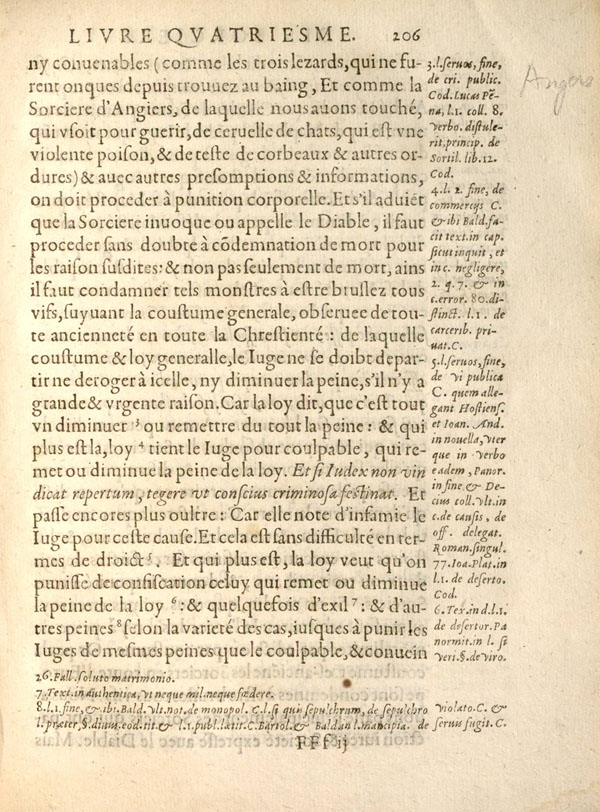 LIVRE QVATRIESME. 206
ny conuenables (comme les trois lezards, qui ne fu-
rent onques depuis trouuez au baing, Et comme la
Sorciere d'Angiers, de laquelle nous auons touché,
qui vsoit pour guerir, de ceruelle de chats, qui est vne
violente poison, & de teste de corbeaux & autres or-
dures) & auec autres presomptions & informations,
on doit proceder à punition corporelle. Et s'il aduiét
que la Sorciere inuoque ou appelle le Diable, il faut
proceder sans doubte à cōdemnation de mort pour
les raison susdites: & non pas seulement de mort, ains
il faut condamner tels monstres à estre bruslez tous
vifs, suyuant la coustume generale, obseruee de tou-
te ancienneté en toute la Chrestienté: de laquelle
coustume & loy generalle, le Iuge ne se doibt depar-
tir ne deroger à icelle, ny diminuer la peine, s'il n'y a
grande & vrgente raison. Car la loy dit, que c'est tout
vn diminuer ³ ou remettre du tout la peine: & qui
plus est la, loy ⁴ tient le Iuge pour coulpable, qui re-
met ou diminue la peine de la loy. Et si Iudex non vin
dicat repertum, tegere vt conscius criminosa festinat. Et
passe encores plus oultre: Car elle note d'infamie le
Iuge pour ceste cause. Et cela est sans difficulté en ter-
mes de droict ⁵. Et qui plus est, la loy veut qu'on
punisse de confiscation celuy qui remet ou diminue
la peine de la loy ⁶: & quelquefois d'exil ⁷: & d'au-
tres peines ⁸ selon la varieté des cas, iusques à punir les
Iuges de mesmes peines que le coulpable, & conuein
3. l. seruos, fine,
de cri. public.
Cod. Lucas Pē-
na, l.1. coll. 8.
verbo. distule-
rit. princip. de
Sortil. lib. 12.
Cod.
4. l. 2. fine, de
commercijs C.
& ibi Bald. fa-
cit text. in cap.
sicut inquit, et
in c. negligere,
2. q. 7. & in
c. error. 80. di-
stinct. l.1. de
carcerib. pri-
uat. C.
5. l. seruos, fine,
de vi publica
C. quem alle-
gant Hostiens.
et Ioan. And.
in nouella, vter
que in verbo
eadem, Panor.
in fine. & De-
cius coll. vlt. in
c. de causis, de
off. delegat.
Roman. singul.
77. Ioa. Plat. in
l.1. de deserto.
Cod.
6. Tex. in d. l.1.
de desertor. Pa
normit. in l. si
veri. §. de viro.
Angers
26. Fall. soluto matrimonio.
7. Text. in authentica, vt neque mil. neque fœdere.
8. l.1. fine, & ibi Bald. vlt. not. de monopol. C. l. si quis sepulchrum, de sepulchro violato. C. &
l. præter, §. diuus. eod. tit. & l.1. publ. latit. C. Bartol. & Bald. in l. mancipia. de seruis fugit. C.
FFf ij